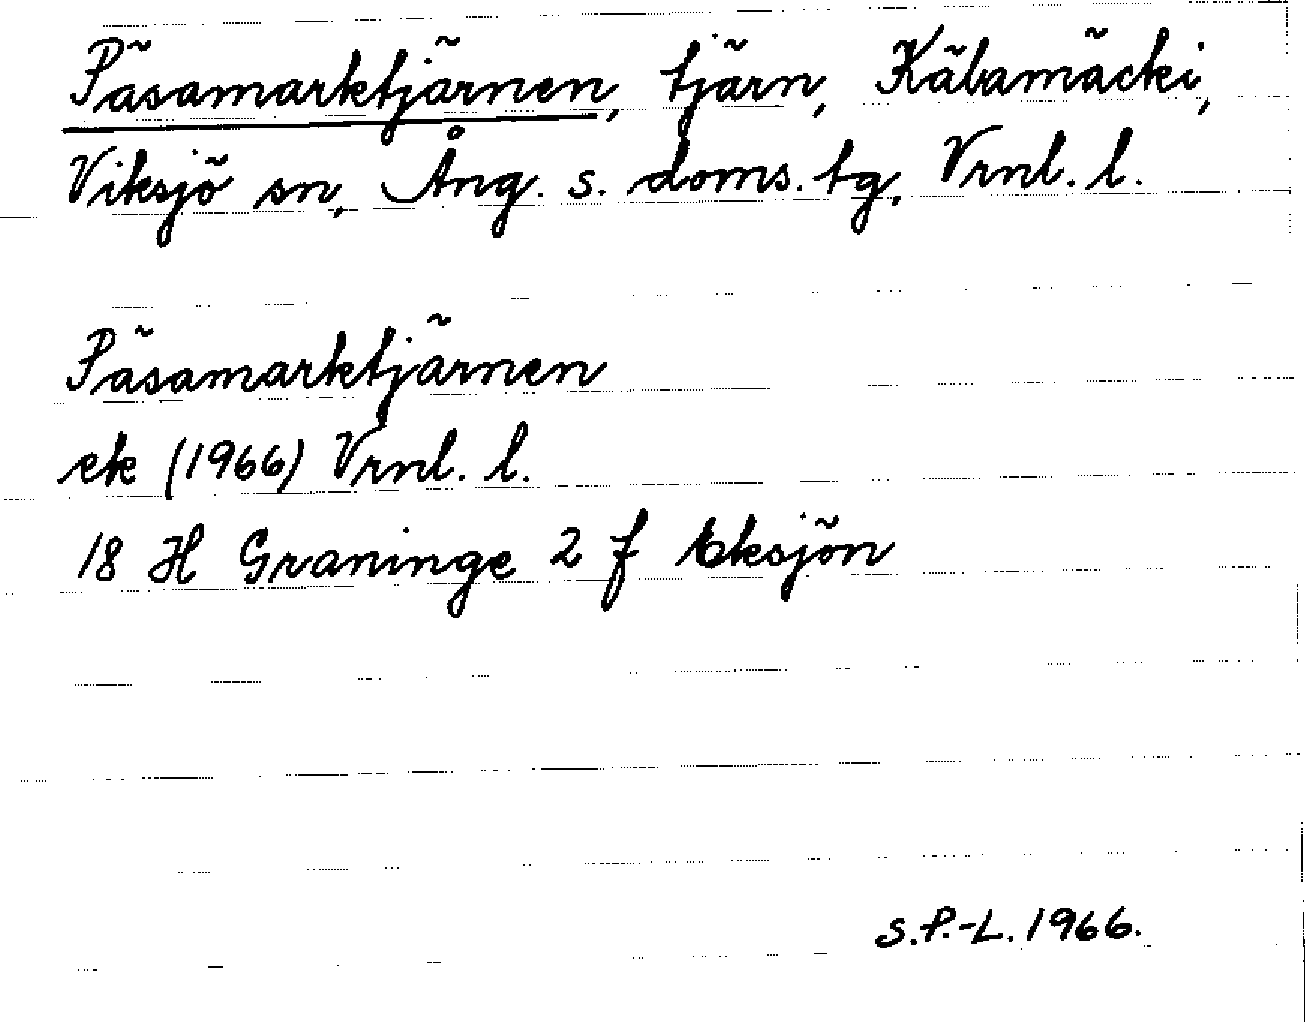 Päsamarktjärnen, tjärn, Käbamäcki,
Viksjö sn, Ång. s. doms. tg, Vrnl. l.
Päsamarktjärnen
ek (1966) Vrnl. l.
18 H Graninge 2 f Eksjön
S.P.-L. 1966.